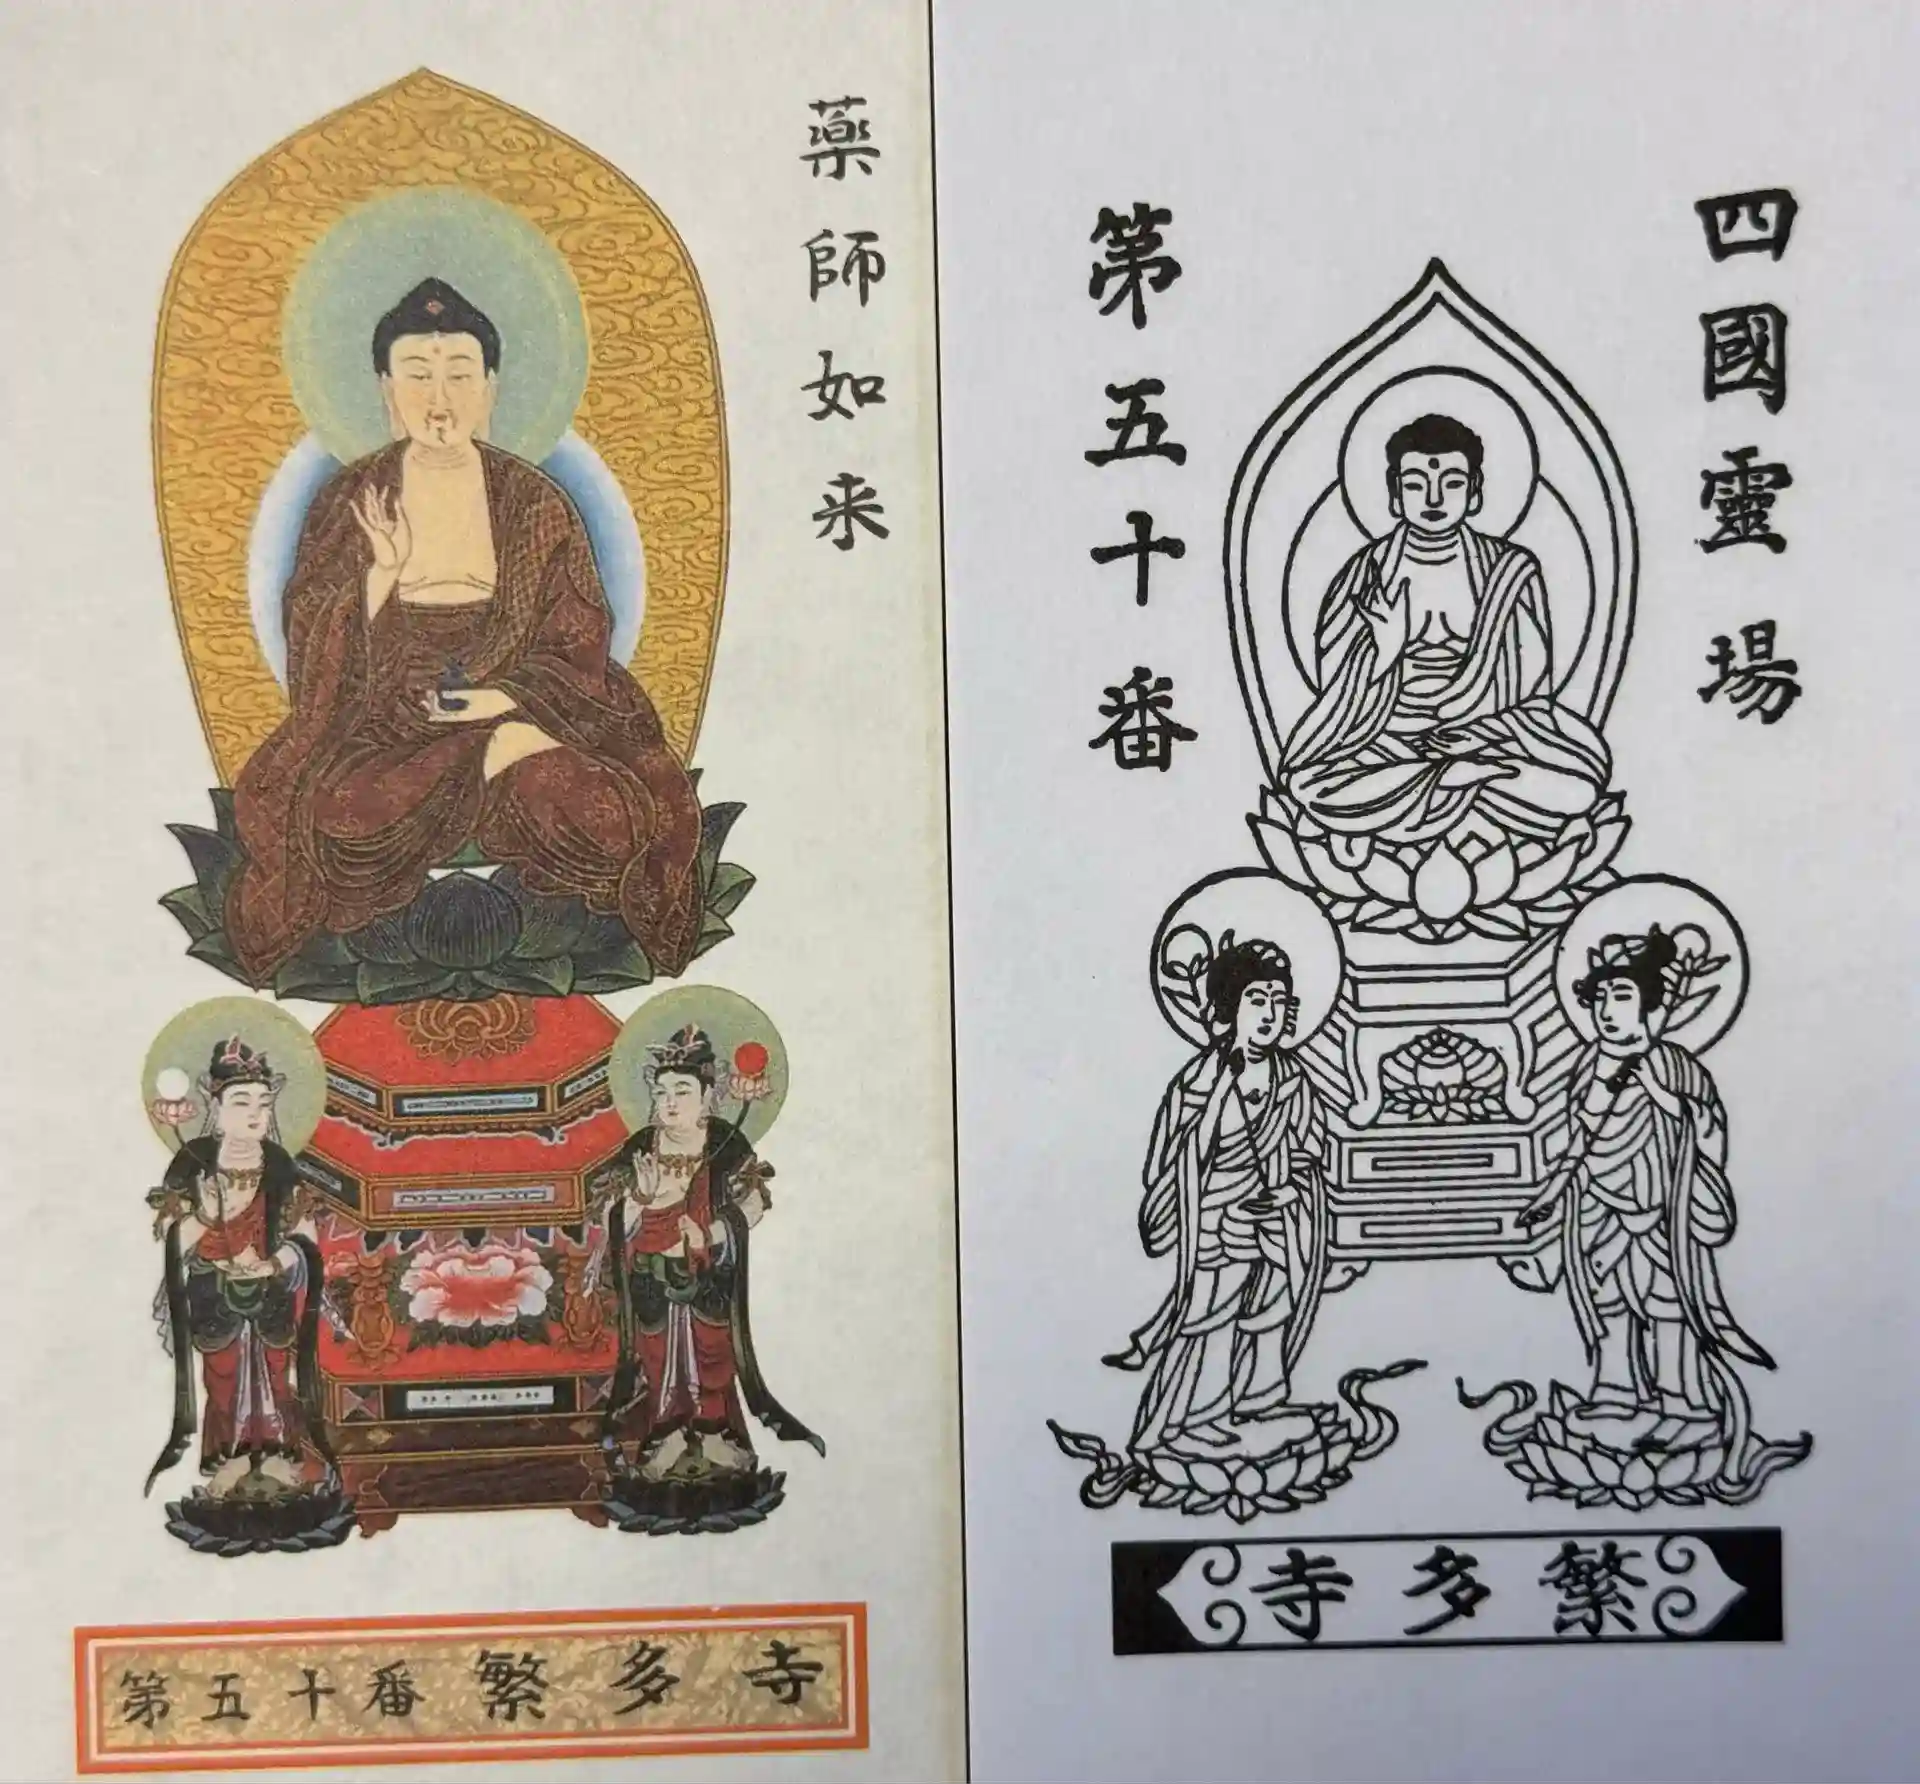 薬師如来
第五十番 繁多寺
四國靈場
第五十番
繁多寺